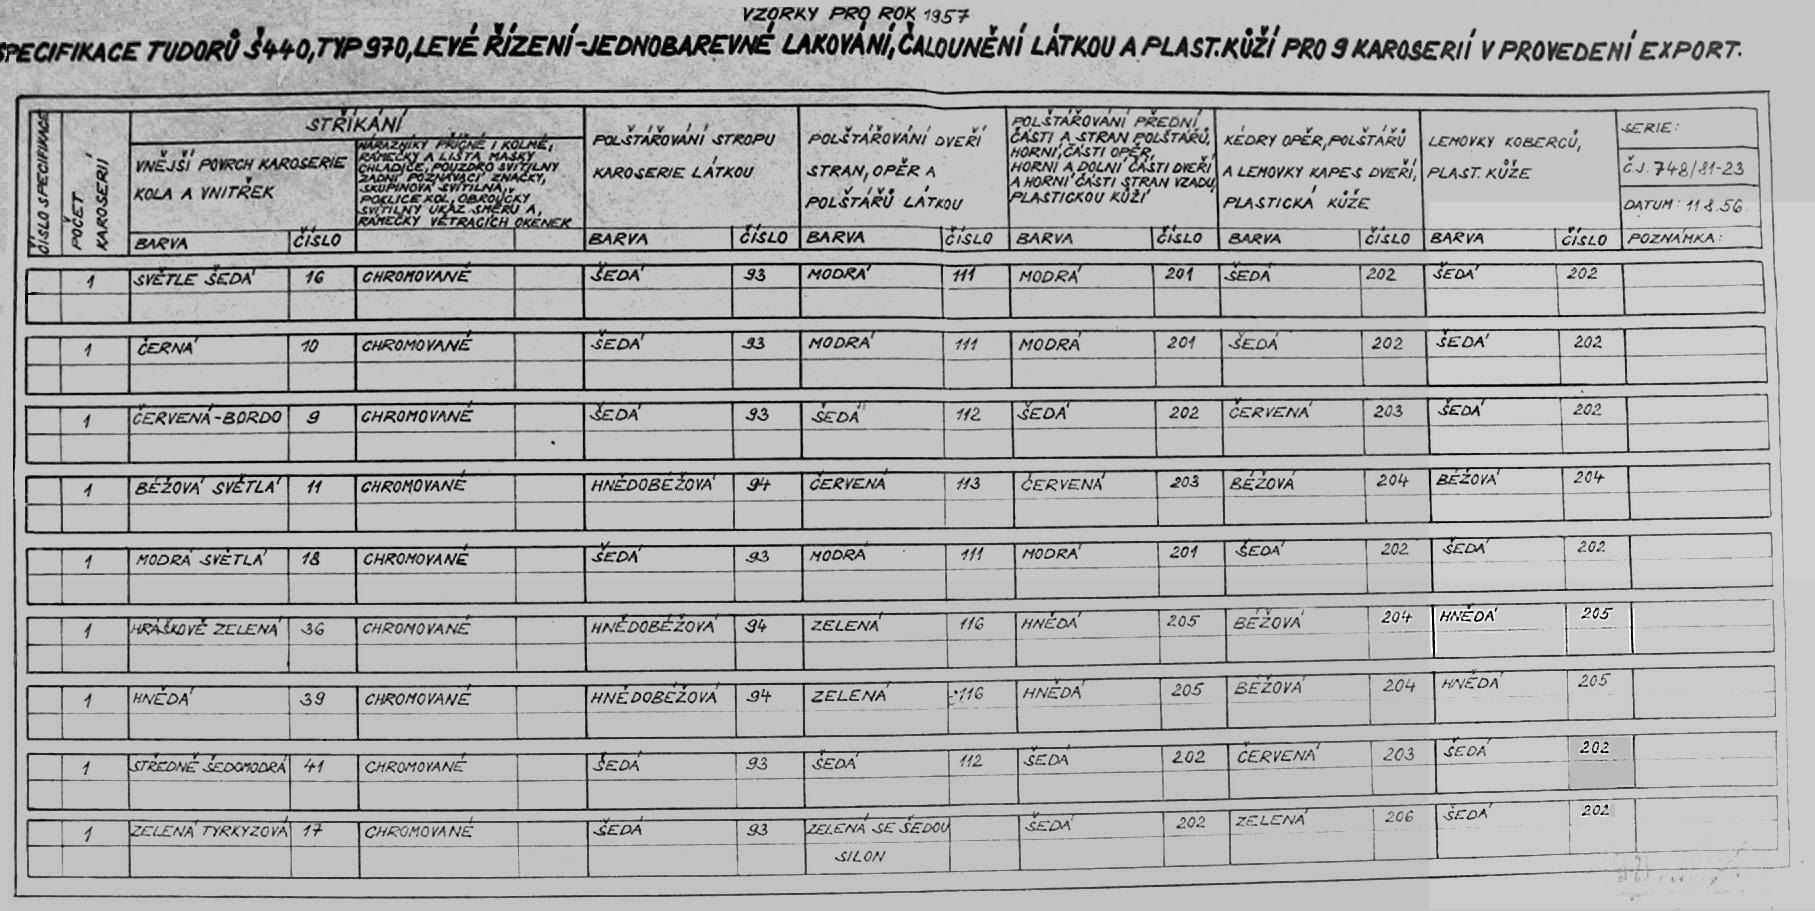 VZORKY PRO ROK 1957
SPECIFIKACE TUDORŮ Š440, TYP 970, LEVÉ ŘÍZENÍ-JEDNOBAREVNÉ LAKOVÁNÍ, ČALOUNĚNÍ LÁTKOU A PLAST. KŮŽÍ PRO 9 KAROSERIÍ V PROVEDENÍ EXPORT.
ČÍSLO SPECIFIKACE
POČET
KAROSERIÍ
STŘÍKÁNÍ
VNĚJŠÍ POVRCH KAROSERIE
KOLA A VNITŘEK
NÁRAZNÍKY PŘÍČNÉ I KOLMÉ,
RÁMEČKY A LIŠTA MASKY
CHLADIČE, POUZDRO SVÍTILNY
ZADNÍ POZNÁVACÍ ZNAČKY,
SKUPINOVÁ SVÍTILNA,
POKLICE KOL, OBROUČKY
SVÍTILNY UKAZ. SMĚRU A,
RÁMEČKY VĚTRACÍCH OKÉNEK
POLŠTÁŘOVÁNÍ STROPU
KAROSERIE LÁTKOU
POLŠTÁŘOVÁNÍ DVEŘÍ
STRAN, OPĚR A
POLŠTÁŘŮ LÁTKOU
POLŠTÁŘOVÁNÍ PŘEDNÍ
ČÁSTI A STRAN POLŠTÁŘŮ,
HORNÍ, ČÁSTI OPĚR,
HORNÍ A DOLNÍ ČÁSTI DVEŘÍ
A HORNÍ ČÁSTI STRAN VZADU,
PLASTICKOU KŮŽÍ
KÉDRY OPĚR, POLŠTÁŘŮ
A LEMOVKY KAPES DVEŘÍ,
PLASTICKÁ KŮŽE
LEMOVKY KOBERCŮ,
PLAST. KŮŽE
SERIE:
Č.J. 748/81-23
DATUM: 11.8.56.
POZNÁMKA:
BARVA ČÍSLO BARVA ČÍSLO BARVA ČÍSLO BARVA ČÍSLO BARVA ČÍSLO BARVA ČÍSLO
1 SVĚTLE ŠEDÁ 16 CHROMOVANÉ ŠEDÁ 93 MODRÁ 111 MODRÁ 201 ŠEDÁ 202 ŠEDÁ 202
1 ČERNÁ 10 CHROMOVANÉ ŠEDÁ 93 MODRÁ 111 MODRÁ 201 ŠEDÁ 202 ŠEDÁ 202
1 ČERVENÁ-BORDO 9 CHROMOVANÉ ŠEDÁ 93 ŠEDÁ 112 ŠEDÁ 202 ČERVENÁ 203 ŠEDÁ 202
1 BÉŽOVÁ SVĚTLÁ 11 CHROMOVANÉ HNĚDOBÉŽOVÁ 94 ČERVENÁ 113 ČERVENÁ 203 BÉŽOVÁ 204 BÉŽOVÁ 204
1 MODRÁ SVĚTLÁ 18 CHROMOVANÉ ŠEDÁ 93 MODRÁ 111 MODRÁ 201 ŠEDÁ 202 ŠEDÁ 202
1 HRÁŠKOVĚ ZELENÁ 36 CHROMOVANÉ HNĚDOBÉŽOVÁ 94 ZELENÁ 116 HNĚDÁ 205 BÉŽOVÁ 204 HNĚDÁ 205
1 HNĚDÁ 39 CHROMOVANÉ HNĚDOBÉŽOVÁ 94 ZELENÁ 116 HNĚDÁ 205 BÉŽOVÁ 204 HNĚDÁ 205
1 STŘEDNĚ ŠEDOMODRÁ 41 CHROMOVANÉ ŠEDÁ 93 ŠEDÁ 112 ŠEDÁ 202 ČERVENÁ 203 ŠEDÁ 202
1 ZELENÁ TYRKYZOVÁ 17 CHROMOVANÉ ŠEDÁ 93 ZELENÁ SE ŠEDOU ŠEDÁ 202 ZELENÁ 206 ŠEDÁ 202
SILON